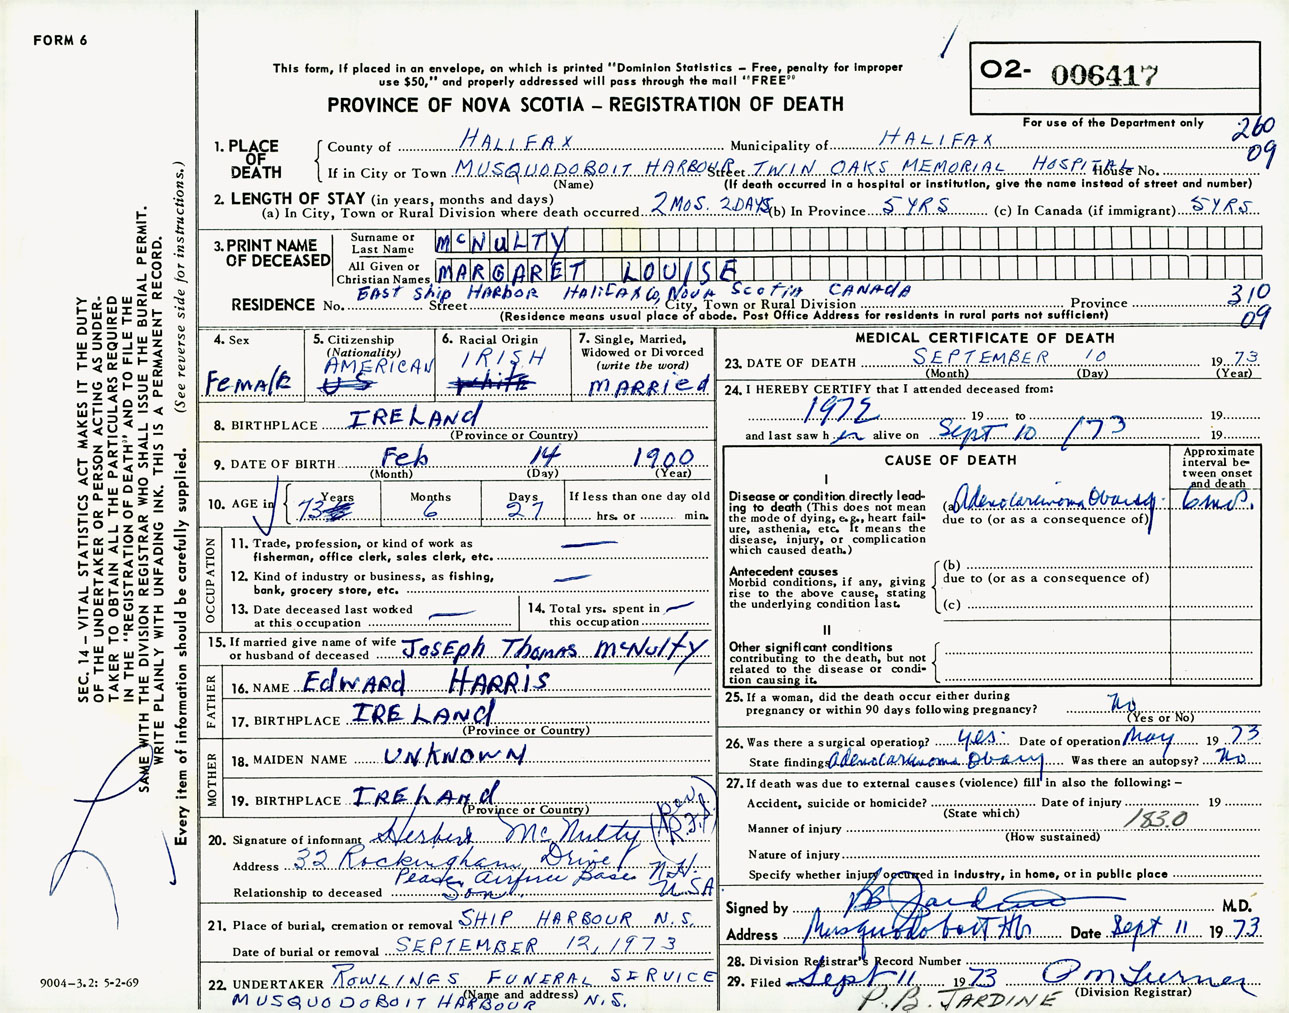 FORM 6
This form, if placed in an envelope, on which is printed "Dominion Statistics – Free, penalty for improper
use $50," and properly addressed will pass through the mail "FREE"
PROVINCE OF NOVA SCOTIA – REGISTRATION OF DEATH
O2- 006417
For use of the Department only
260
09
1. PLACE OF DEATH
County of HALIFAX Municipality of HALIFAX
If in City or Town MUSQUODOBOIT HARBOUR Street TWIN OAKS MEMORIAL HOSPITAL House No.
(Name) (If death occurred in a hospital or institution, give the name instead of street and number)
2. LENGTH OF STAY (in years, months and days)
(a) In City, Town or Rural Division where death occurred 2 MOS. 2 DAYS (b) In Province 5 YRS (c) In Canada (if immigrant) 5 YRS
3. PRINT NAME OF DECEASED
Surname or Last Name McNULTY
All Given or Christian Names MARGARET LOUISE
EAST SHIP HARBOR HALIFAX Co, NOVA SCOTIA CANADA
RESIDENCE No. Street City, Town or Rural Division Province
(Residence means usual place of abode. Post Office Address for residents in rural parts not sufficient)
310
09
4. Sex
Female
5. Citizenship
(Nationality)
AMERICAN
US
6. Racial Origin
IRISH
white
7. Single, Married,
Widowed or Divorced
(write the word)
MARRIED
8. BIRTHPLACE IRELAND
(Province or Country)
9. DATE OF BIRTH Feb 14 1900
(Month) (Day) (Year)
10. AGE in
Years 73
Months 6
Days 27
If less than one day old
hrs. or min.
OCCUPATION
11. Trade, profession, or kind of work as
fisherman, office clerk, sales clerk, etc. —
12. Kind of industry or business, as fishing,
bank, grocery store, etc. —
13. Date deceased last worked
at this occupation —
14. Total yrs. spent in
this occupation —
15. If married give name of wife
or husband of deceased JOSEPH THOMAS McNULTY
FATHER
16. NAME EDWARD HARRIS
17. BIRTHPLACE IRELAND
(Province or Country)
MOTHER
18. MAIDEN NAME UNKNOWN
19. BIRTHPLACE IRELAND
(Province or Country)
20. Signature of informant Herbert McNulty
Address 32 Rockingham Drive
Pease Airforce Base N.H.
USA
Relationship to deceased Son
21. Place of burial, cremation or removal SHIP HARBOUR N.S.
Date of burial or removal SEPTEMBER 12, 1973
22. UNDERTAKER ROWLINGS FUNERAL SERVICE
(Name and address)
MUSQUODOBOIT HARBOUR N.S.
MEDICAL CERTIFICATE OF DEATH
23. DATE OF DEATH SEPTEMBER 10 1973
(Month) (Day) (Year)
24. I HEREBY CERTIFY that I attended deceased from:
1972 19 to 19
and last saw her alive on Sept 10 /73 19
CAUSE OF DEATH
Approximate
interval be-
tween onset
and death
I
Disease or condition directly lead-
ing to death (This does not mean
the mode of dying, e.g., heart fail-
ure, asthenia, etc. It means the
disease, injury, or complication
which caused death.)
(a) Adenocarcinoma Ovary 6 mos.
due to (or as a consequence of)
Antecedent causes
Morbid conditions, if any, giving
rise to the above cause, stating
the underlying condition last.
(b)
due to (or as a consequence of)
(c)
II
Other significant conditions
contributing to the death, but not
related to the disease or condi-
tion causing it.
25. If a woman, did the death occur either during
pregnancy or within 90 days following pregnancy? No
(Yes or No)
26. Was there a surgical operation? yes. Date of operation May 1973
State findings Adenocarcinoma Ovary Was there an autopsy? No
27. If death was due to external causes (violence) fill in also the following: –
Accident, suicide or homicide? Date of injury 19
(State which)
Manner of injury 183.0
(How sustained)
Nature of injury
Specify whether injury occurred in industry, in home, or in public place
Signed by PB Jardine M.D.
Address Musquodoboit Hbr Date Sept 11 1973
28. Division Registrar's Record Number
29. Filed Sept 11 1973 PM Turner
(Division Registrar)
P.B. JARDINE
SEC. 14 – VITAL STATISTICS ACT MAKES IT THE DUTY
OF THE UNDERTAKER OR PERSON ACTING AS UNDER-
TAKER TO OBTAIN ALL THE PARTICULARS REQUIRED
IN THE "REGISTRATION OF DEATH" AND TO FILE THE
SAME WITH THE DIVISION REGISTRAR WHO SHALL ISSUE THE BURIAL PERMIT.
WRITE PLAINLY WITH UNFADING INK. THIS IS A PERMANENT RECORD.
Every item of information should be carefully supplied. (See reverse side for instructions.)
9004-3.2: 5-2-69